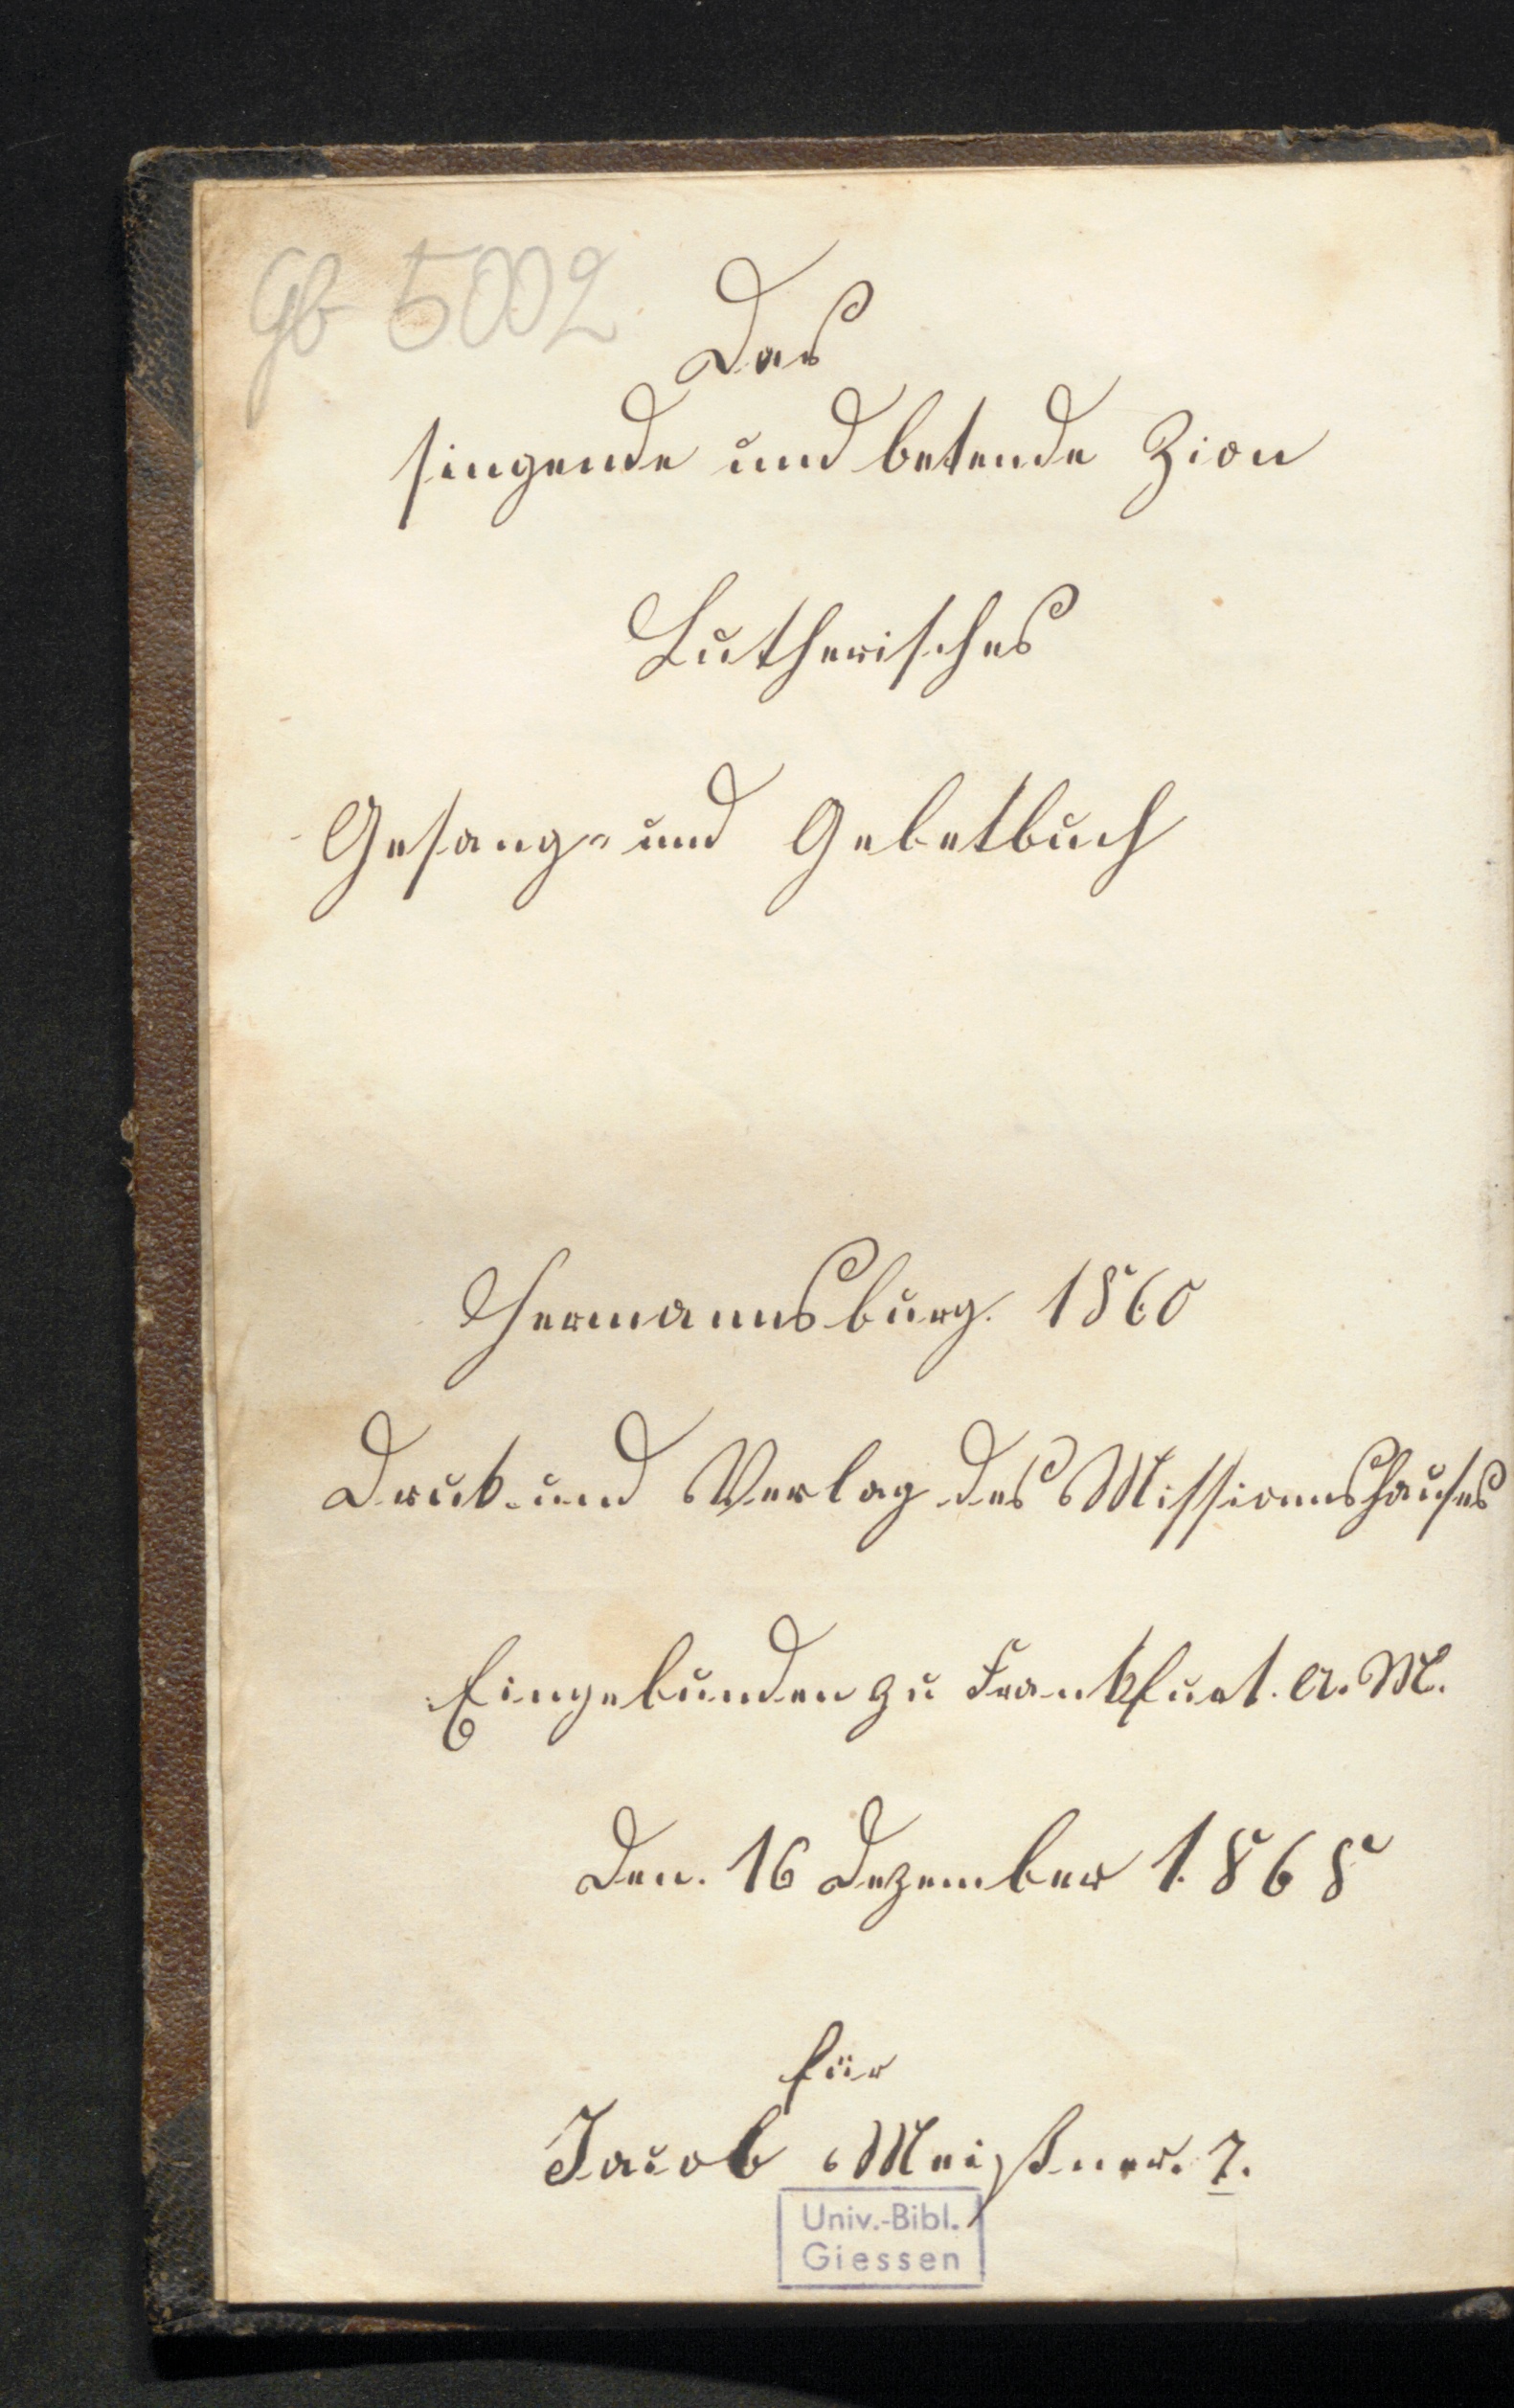 Gb 5002
Das
singende und betende Zion
Lutherisches
Gesang- und Gebetbuch
Hermannsburg. 1860
Druk und Verlag des Missionnshauses
Eingebunden zu Frankfurt. A. M.
Den. 16 Dezember 1868
für
Jacob Meißner. 7.
Univ.-Bibl.
Giessen